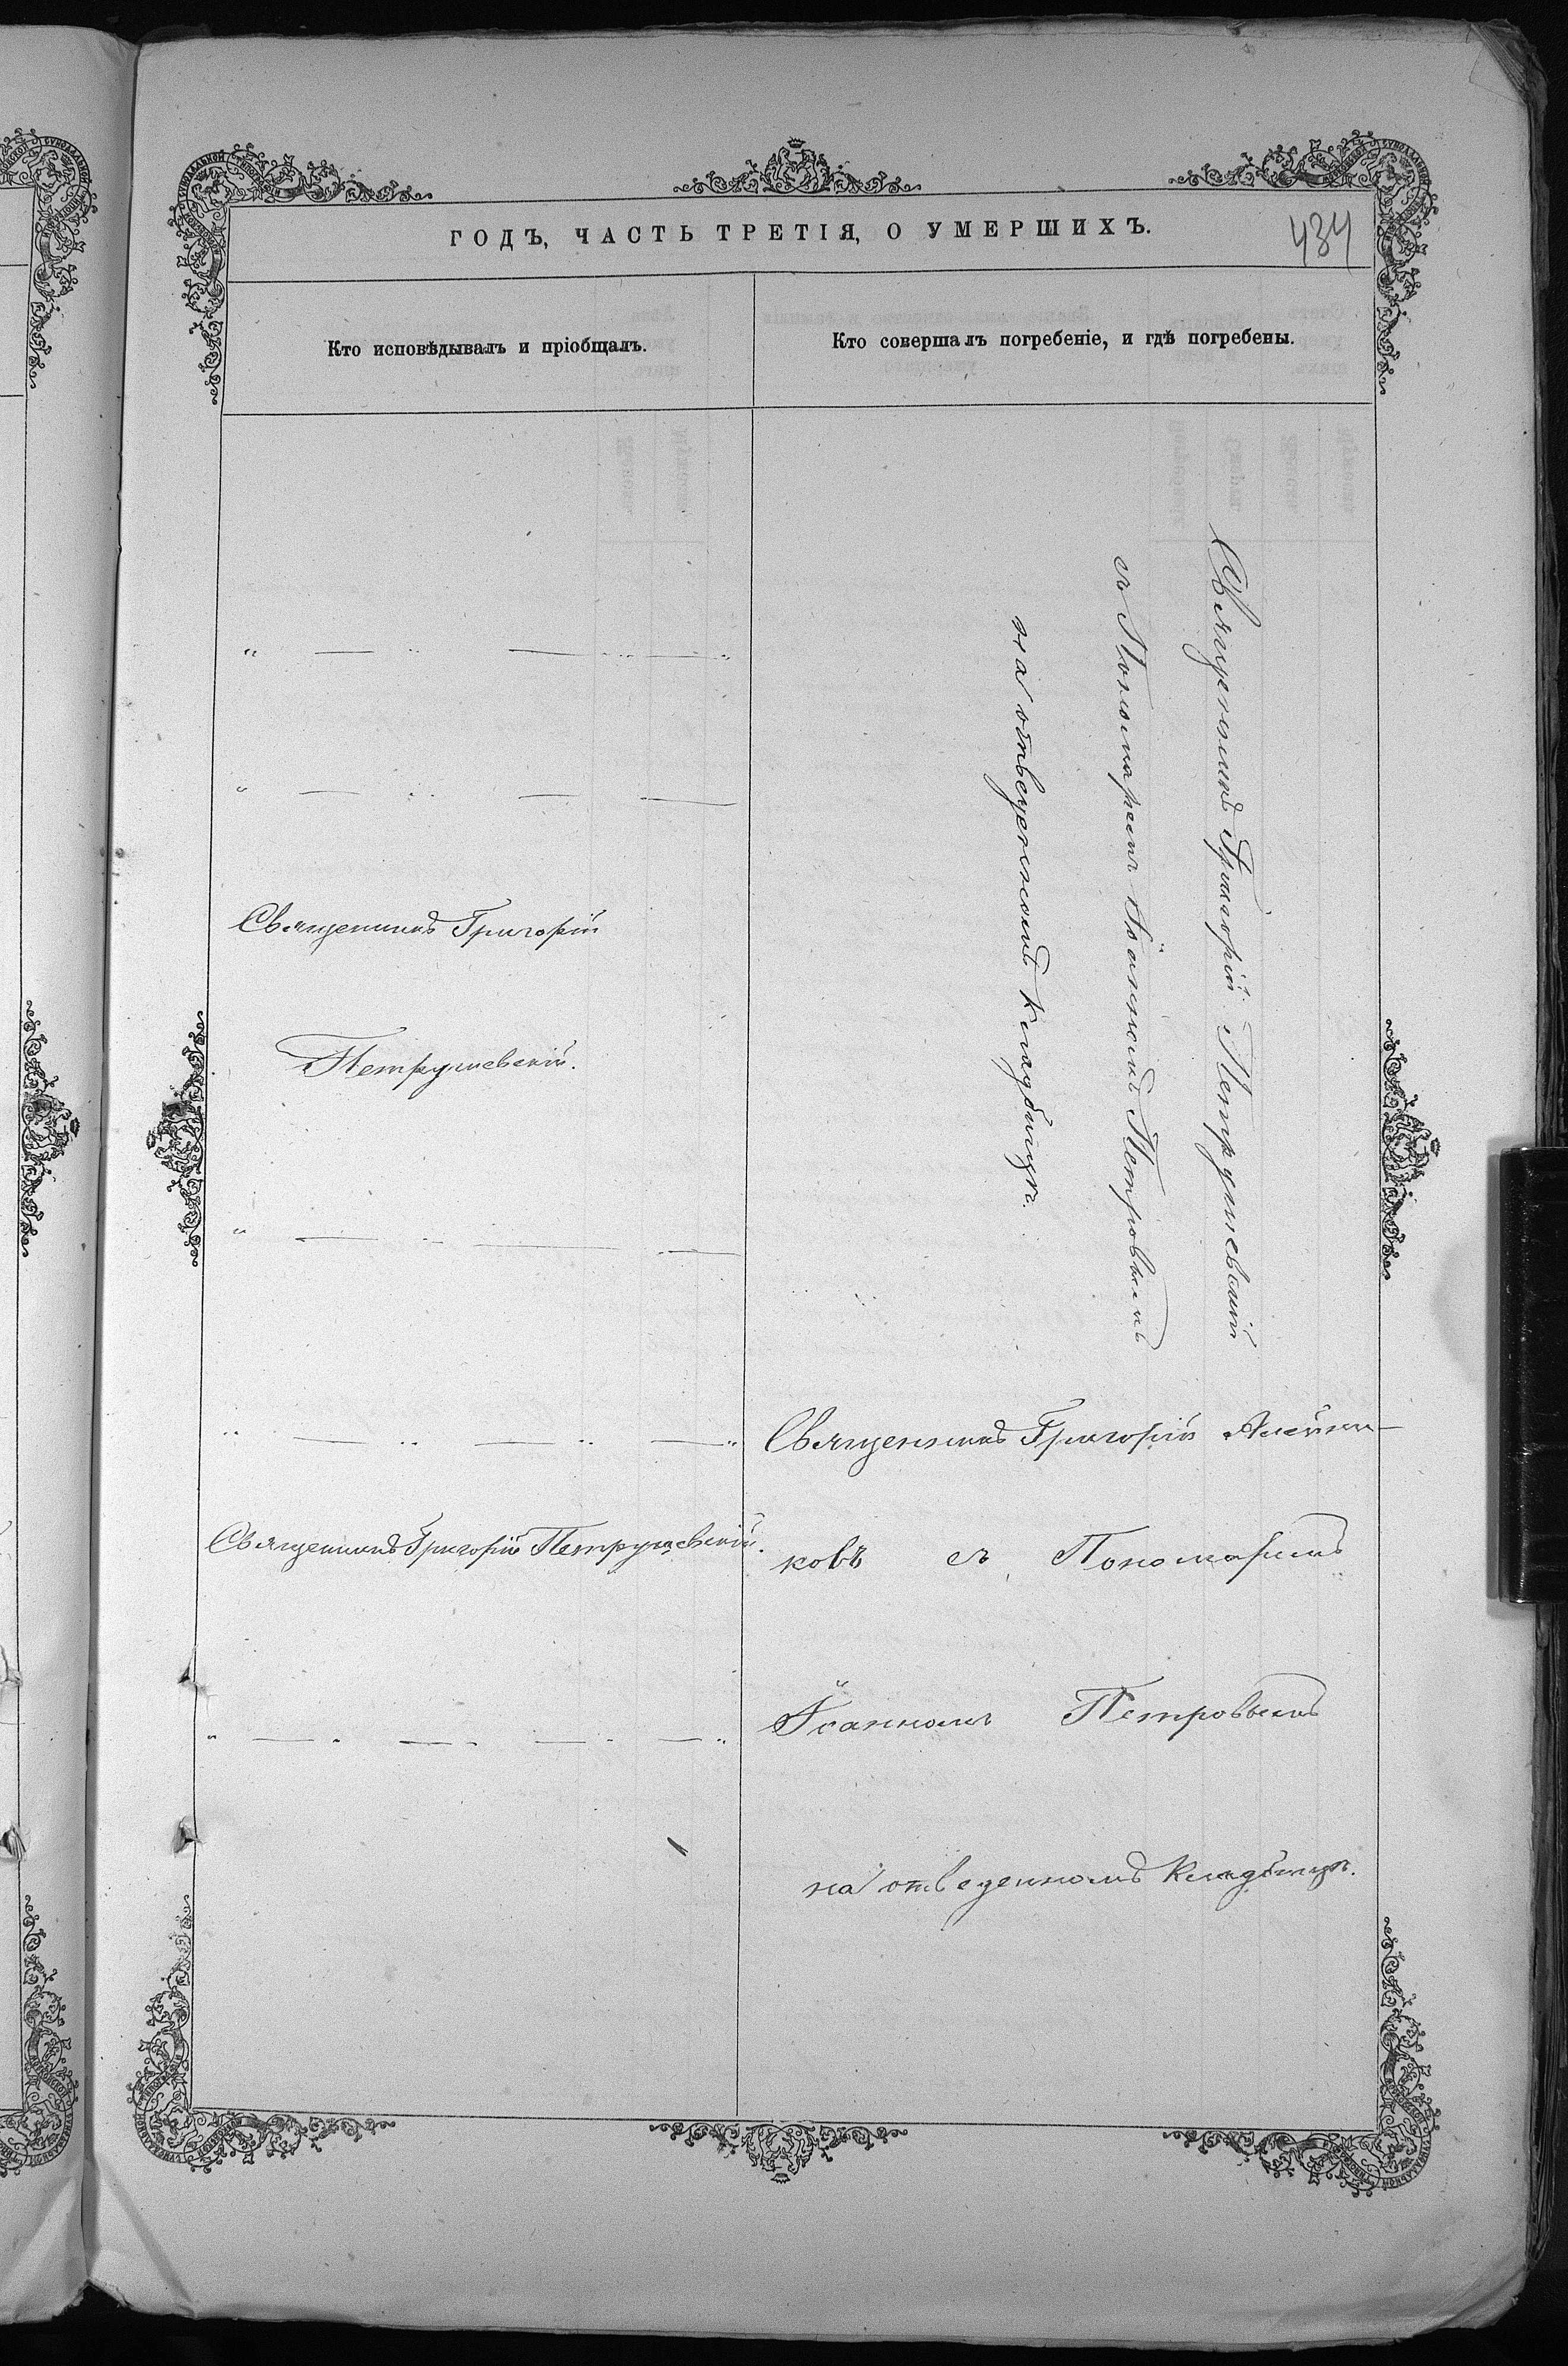 ГОДЪ, ЧАСТЬ ТРЕТІЯ, О УМЕРШИХЪ.
434
Кто исповѣдывалъ и пріобщалъ.
Кто совершалъ погребеніе, и гдѣ погребены.
Священникъ Григорій
Петрушевскій.
Священникъ Григорій Петрушевскій.
Священникъ Григорій Петрушевскій
съ Пономаремъ Іоанномъ Петровымъ
на отведенномъ кладбищѣ.
Священникъ Григорій Алейни-
ковъ съ Пономаремъ
Іоанномъ Петровымъ
на отведенномъ кладбищѣ.